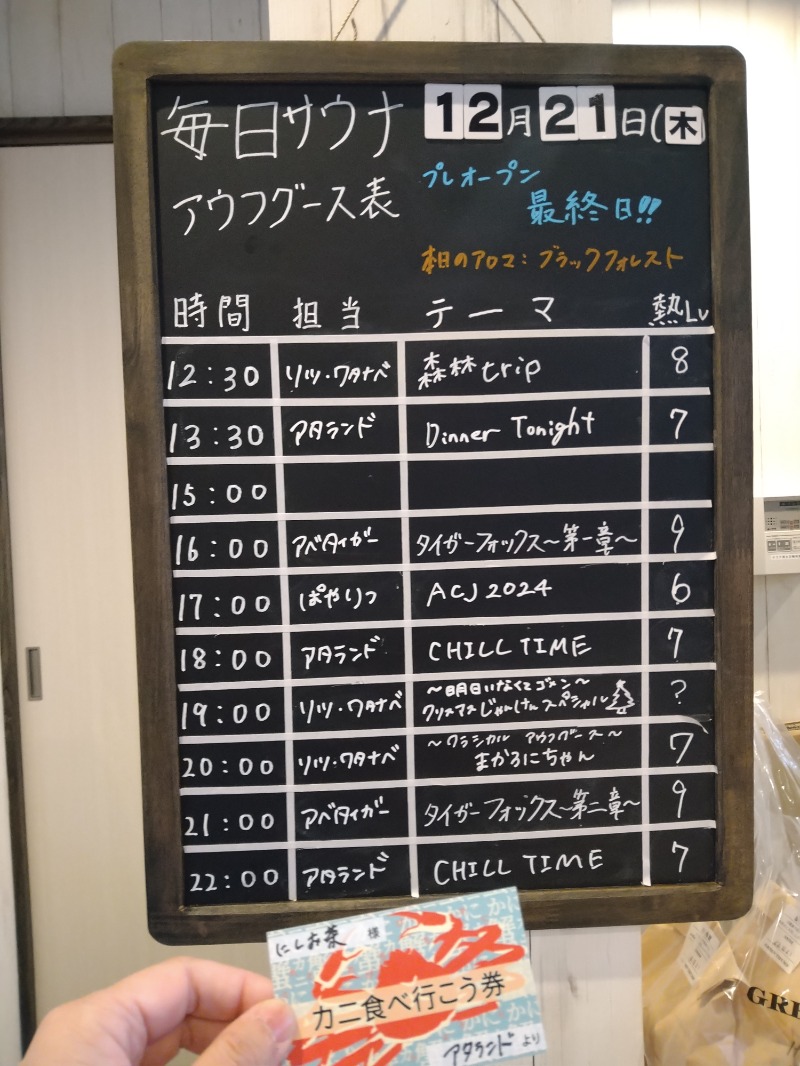 毎日サウナ 12月21日(木)
アウフグース表 プレオープン
最終日!!
本日のアロマ:ブラックフォレスト
時間 担当 テーマ 熱Lv
12:30 リツ・ワタナベ 森林trip 8
13:30 アタランド Dinner Tonight 7
15:00
16:00 アベタイガー タイガーフォックス~第一章~ 9
17:00 ぱやりっ ACJ2024 6
18:00 アタランド CHILL TIME 7
19:00 リツ・ワタナベ ~明日いなくてゴメン~ ?
クリスマスじゃんけんスペシャル
20:00 リツ・ワタナベ ~クラシカル アウフグース~ 7
まかろにちゃん
21:00 アベタイガー タイガーフォックス~第二章~ 9
22:00 アタランド CHILL TIME 7
にしお菜 様
カニ食べ行こう券
アタランドより
GRE